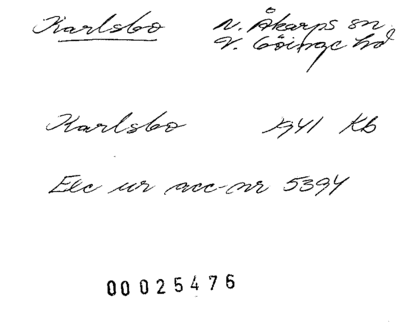 Karlsbo N. Åkarps sn.
V. Göinge hd
Karlsbo 1941 Kb
Exc ur acc-nr 5394
00025476